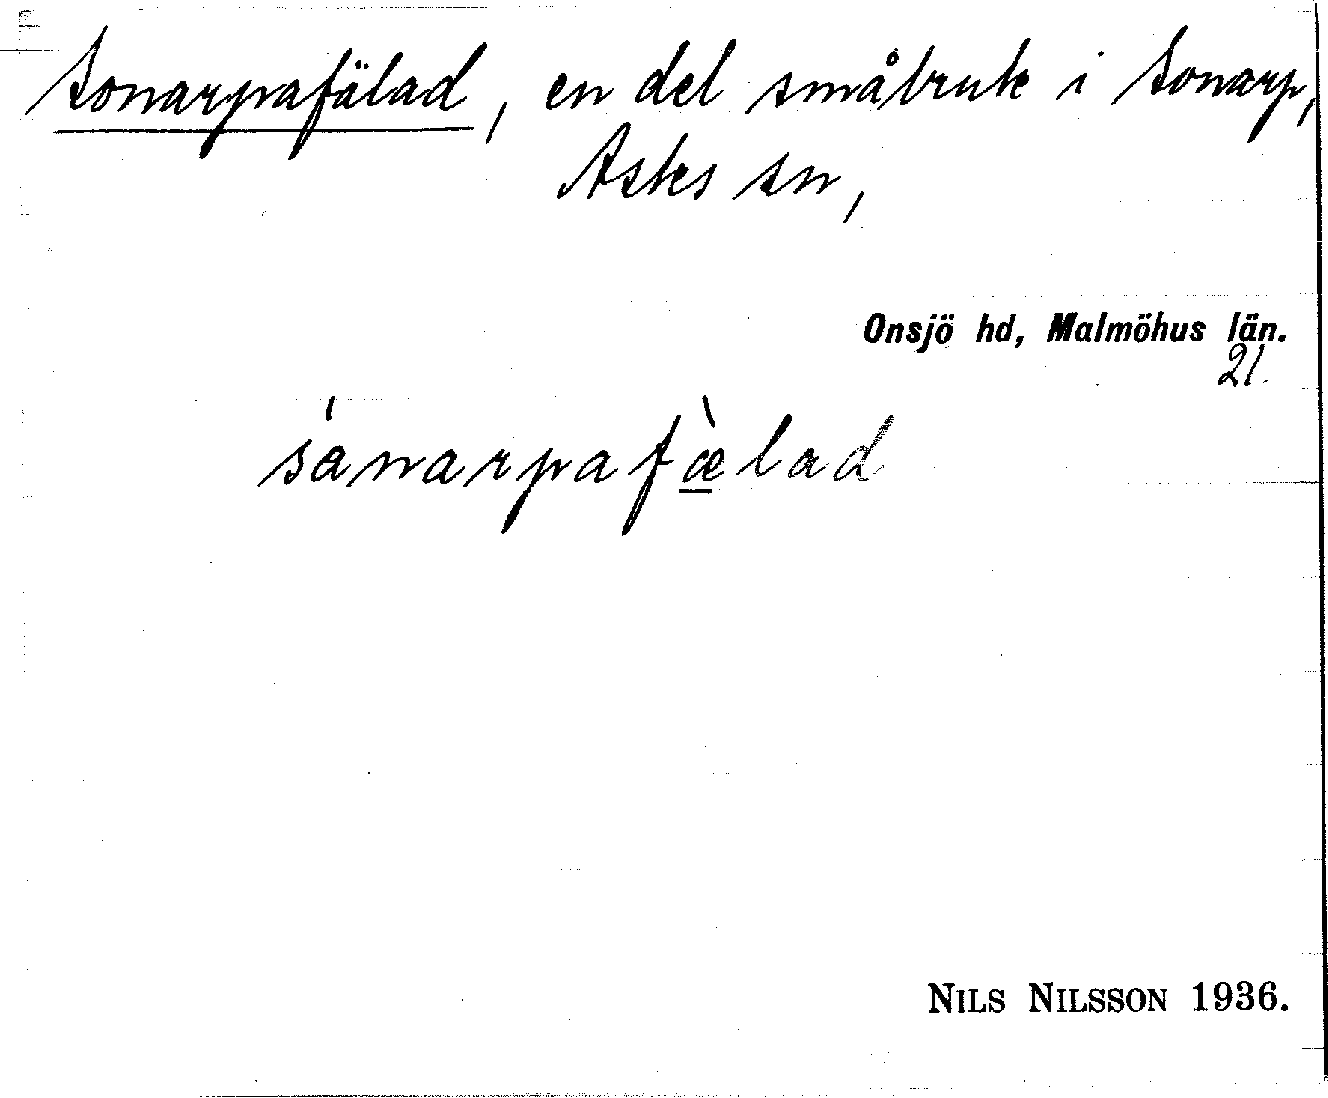 Sonarpafälad, en del småbruk i Sonarp,
Asks sn,
Onsjö hd, Malmöhus län.
21.
sánarpafæ̱̀lad
NILS NILSSON 1936.